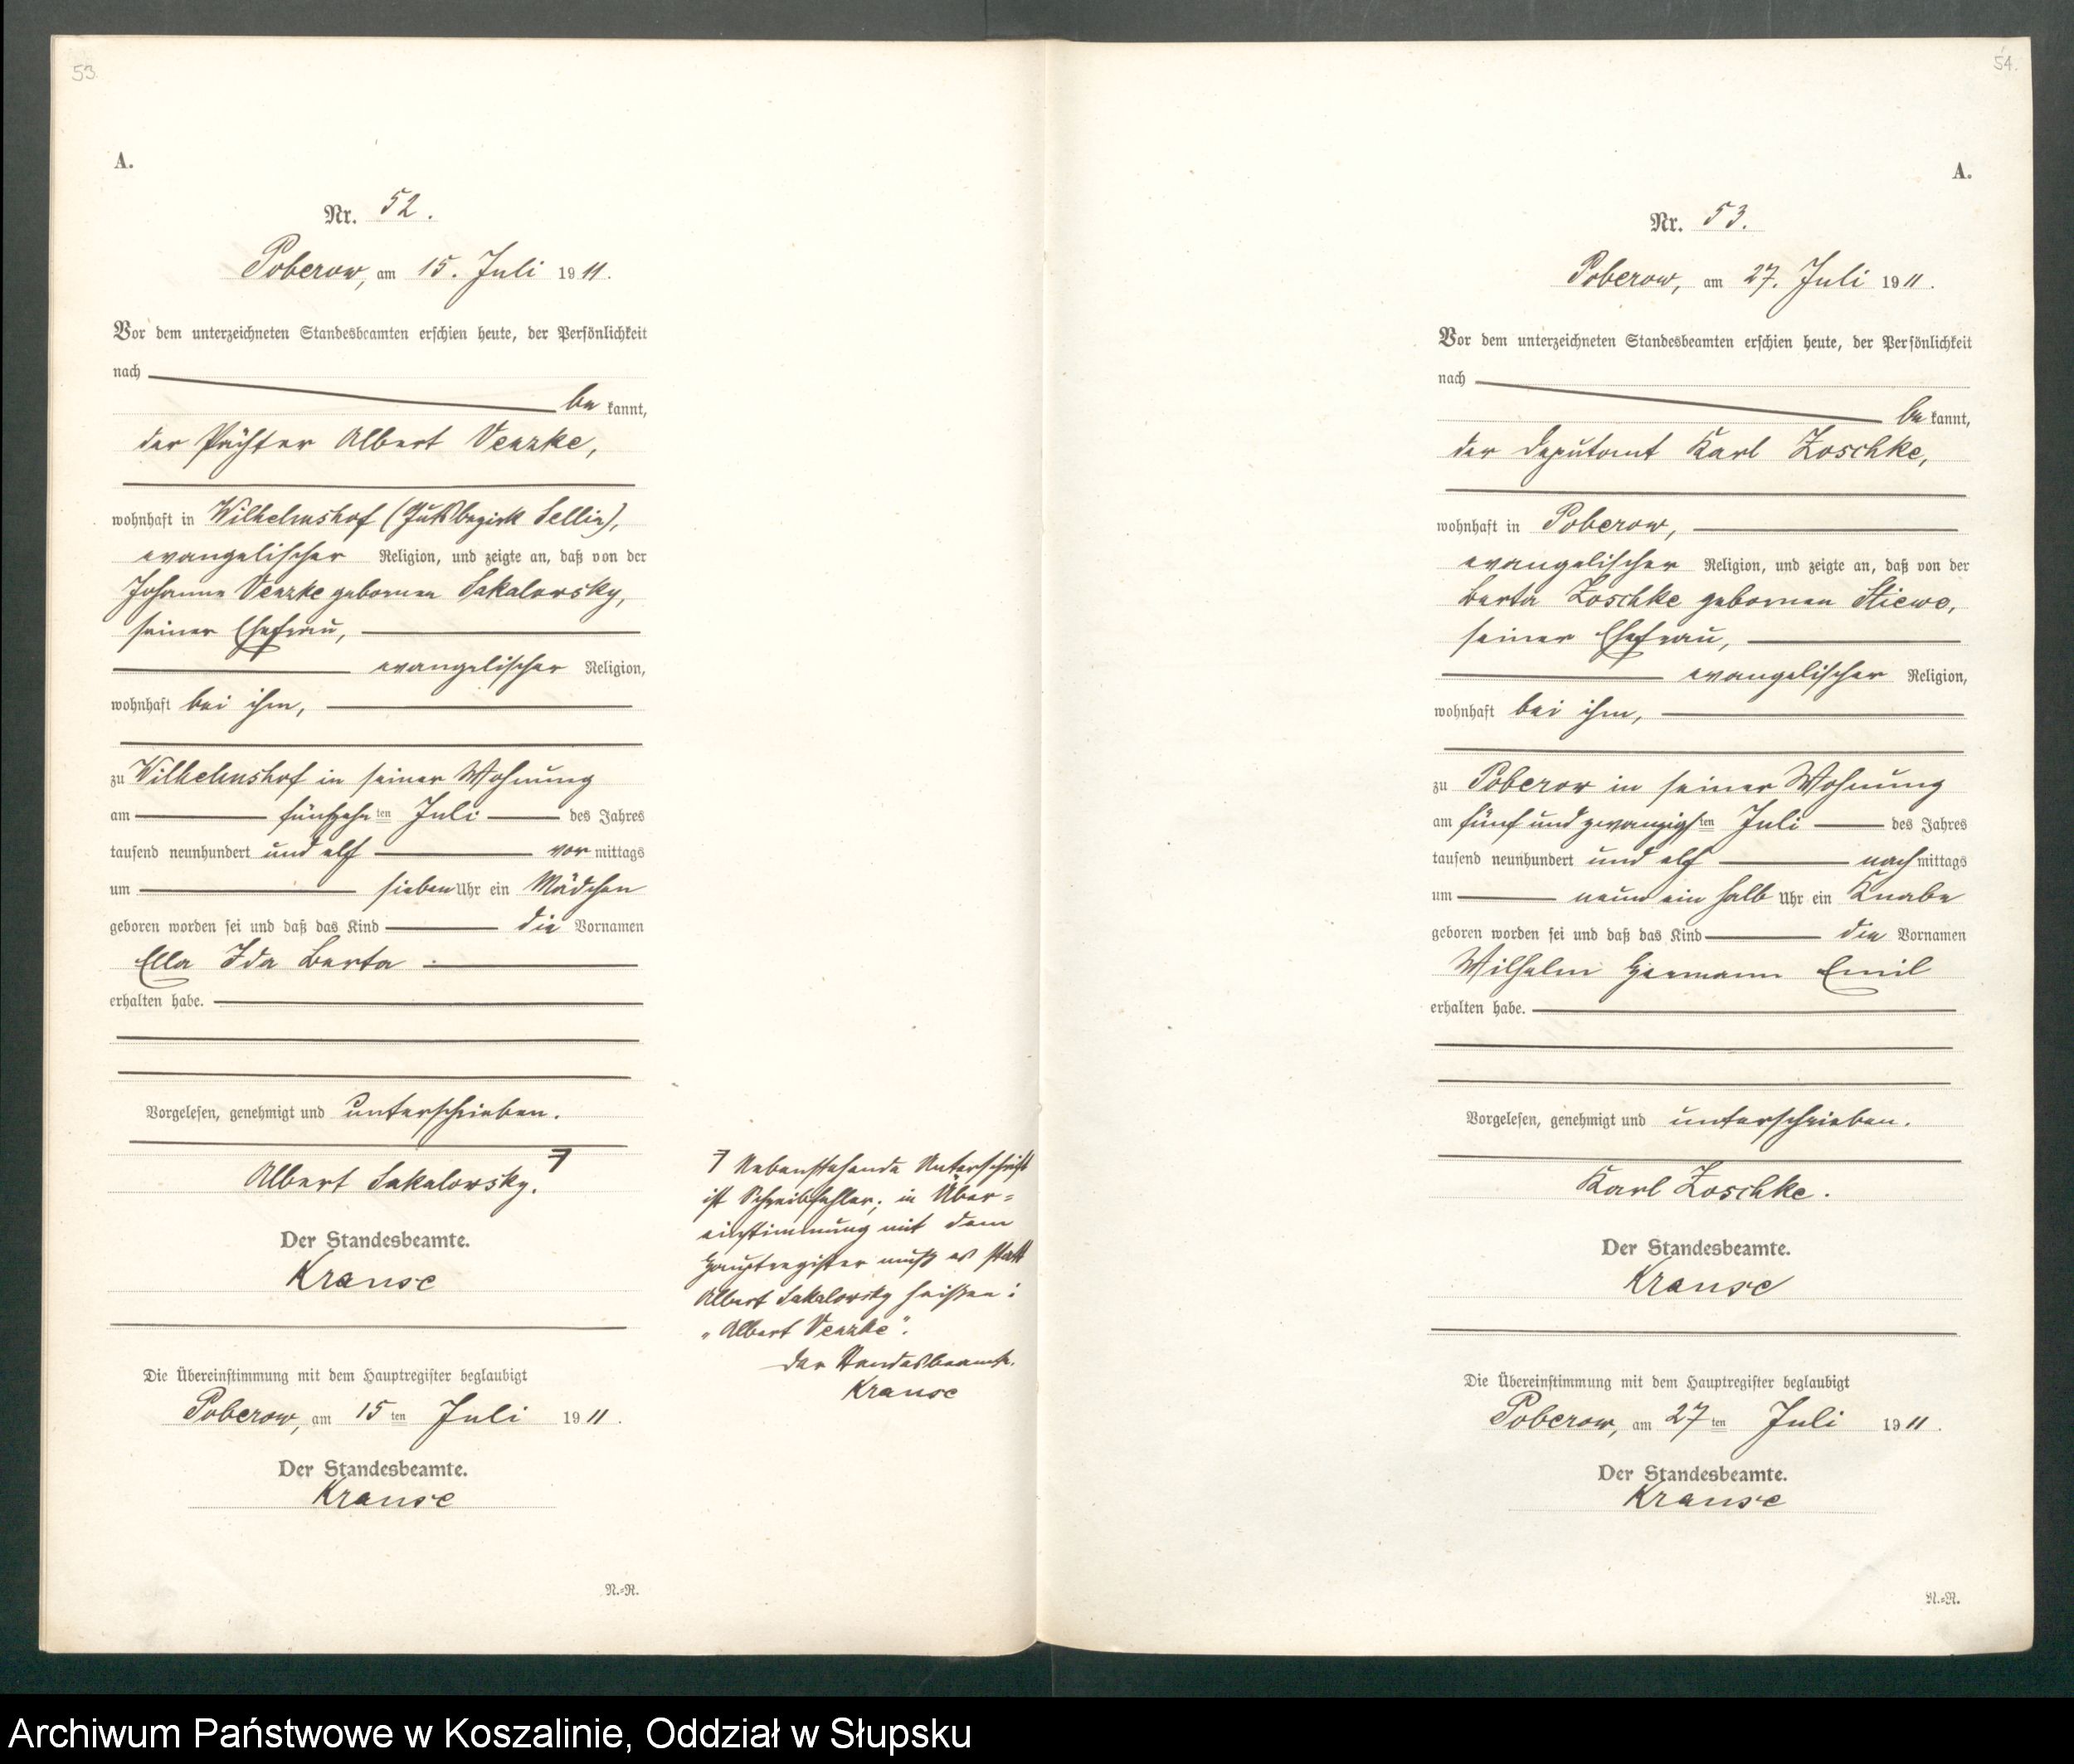 53.
A.
Nr. 52.
Poberow, am 15. Juli 1911.
Vor dem unterzeichneten Standesbeamten erschien heute, der Persönlichkeit
nach
be kannt,
der Pächter Albert Venzke,
wohnhaft in Wilhelmshof (Gutsbezirk Sellin),
evangelischer Religion, und zeigte an, daß von der
Johanne Venzke gebornen Sakalowsky,
seiner Ehefrau,
evangelischer Religion,
wohnhaft bei ihm,
zu Wilhelmshof in seiner Wohnung
am fünfzehn ten Juli des Jahres
tausend neunhundert und elf vor mittags
um sieben Uhr ein Mädchen
geboren worden sei und daß das Kind die Vornamen
Ella Ida Berta
erhalten habe.
Vorgelesen, genehmigt und unterschrieben.
Albert Sakalowsky.
Der Standesbeamte.
Krause
Die Übereinstimmung mit dem Hauptregister beglaubigt
Poberow, am 15 ten Juli 1911.
Der Standesbeamte.
Krause
N.=R.
Nebenstehende Unterschrift
ist Schreibfehler; in Über=
einstimmung mit dem
Hauptregister muß es statt
Albert Sakalowsky heißen:
„Albert Venzke".
Der Standesbeamte.
Krause
54.
A.
Nr. 53.
Poberow, am 27. Juli 1911.
Vor dem unterzeichneten Standesbeamten erschien heute, der Persönlichkeit
nach
be kannt,
der Deputant Karl Zoschke,
wohnhaft in Poberow,
evangelischer Religion, und zeigte an, daß von der
Berta Zoschke gebornen Stiewe,
seiner Ehefrau,
evangelischer Religion,
wohnhaft bei ihm,
zu Poberow in seiner Wohnung
am fünf und zwanzigs ten Juli des Jahres
tausend neunhundert und elf nach mittags
um neun ein halb Uhr ein Knabe
geboren worden sei und daß das Kind die Vornamen
Wilhelm Hermann Emil
erhalten habe.
Vorgelesen, genehmigt und unterschrieben.
Karl Zoschke.
Der Standesbeamte.
Krause
Die Übereinstimmung mit dem Hauptregister beglaubigt
Poberow, am 27 ten Juli 1911.
Der Standesbeamte.
Krause
N.=R.
Archiwum Państwowe w Koszalinie, Oddział w Słupsku